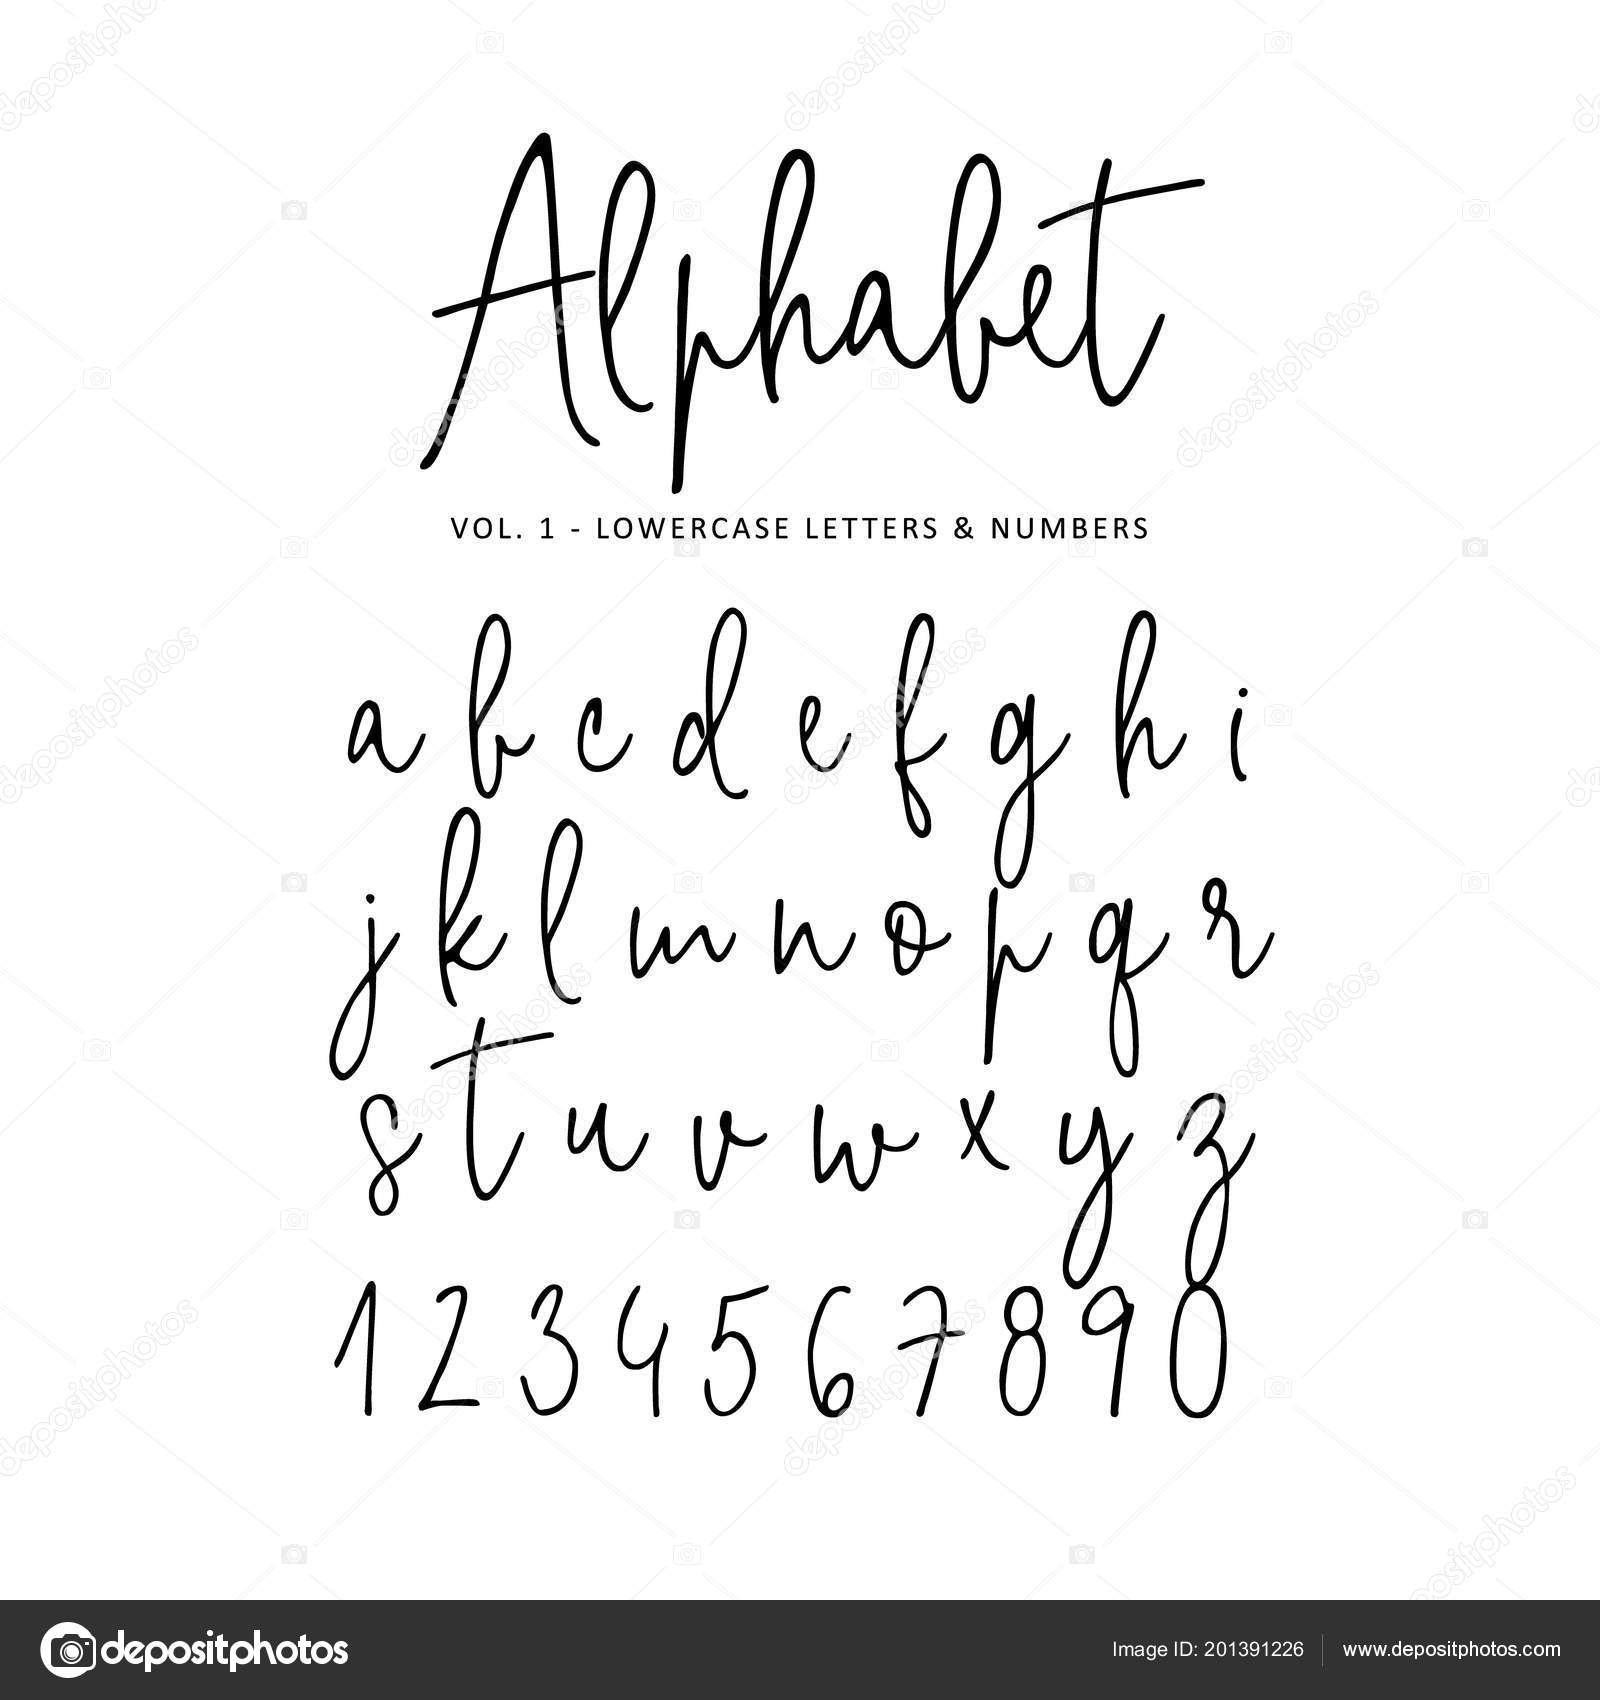 Alphabet
VOL. 1 - LOWERCASE LETTERS & NUMBERS
a b c d e f g h i
j k l m n o p q r
s t u v w x y z
1 2 3 4 5 6 7 8 9 0
depositphotos
Image ID: 201391226 www.depositphotos.com